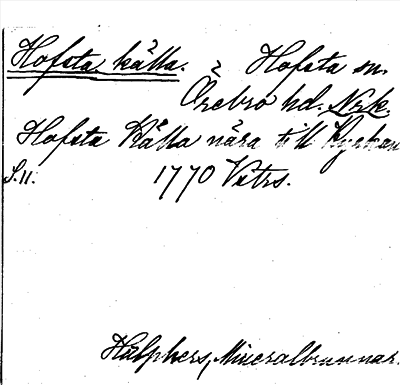 Hofsta källa. Hofsta sn.
Örebro hd. Nrk.
Hofsta Källa nära till Kyrkan
S.11. 1770 Vitrs.
Hülphers, Mineralbrunnar.